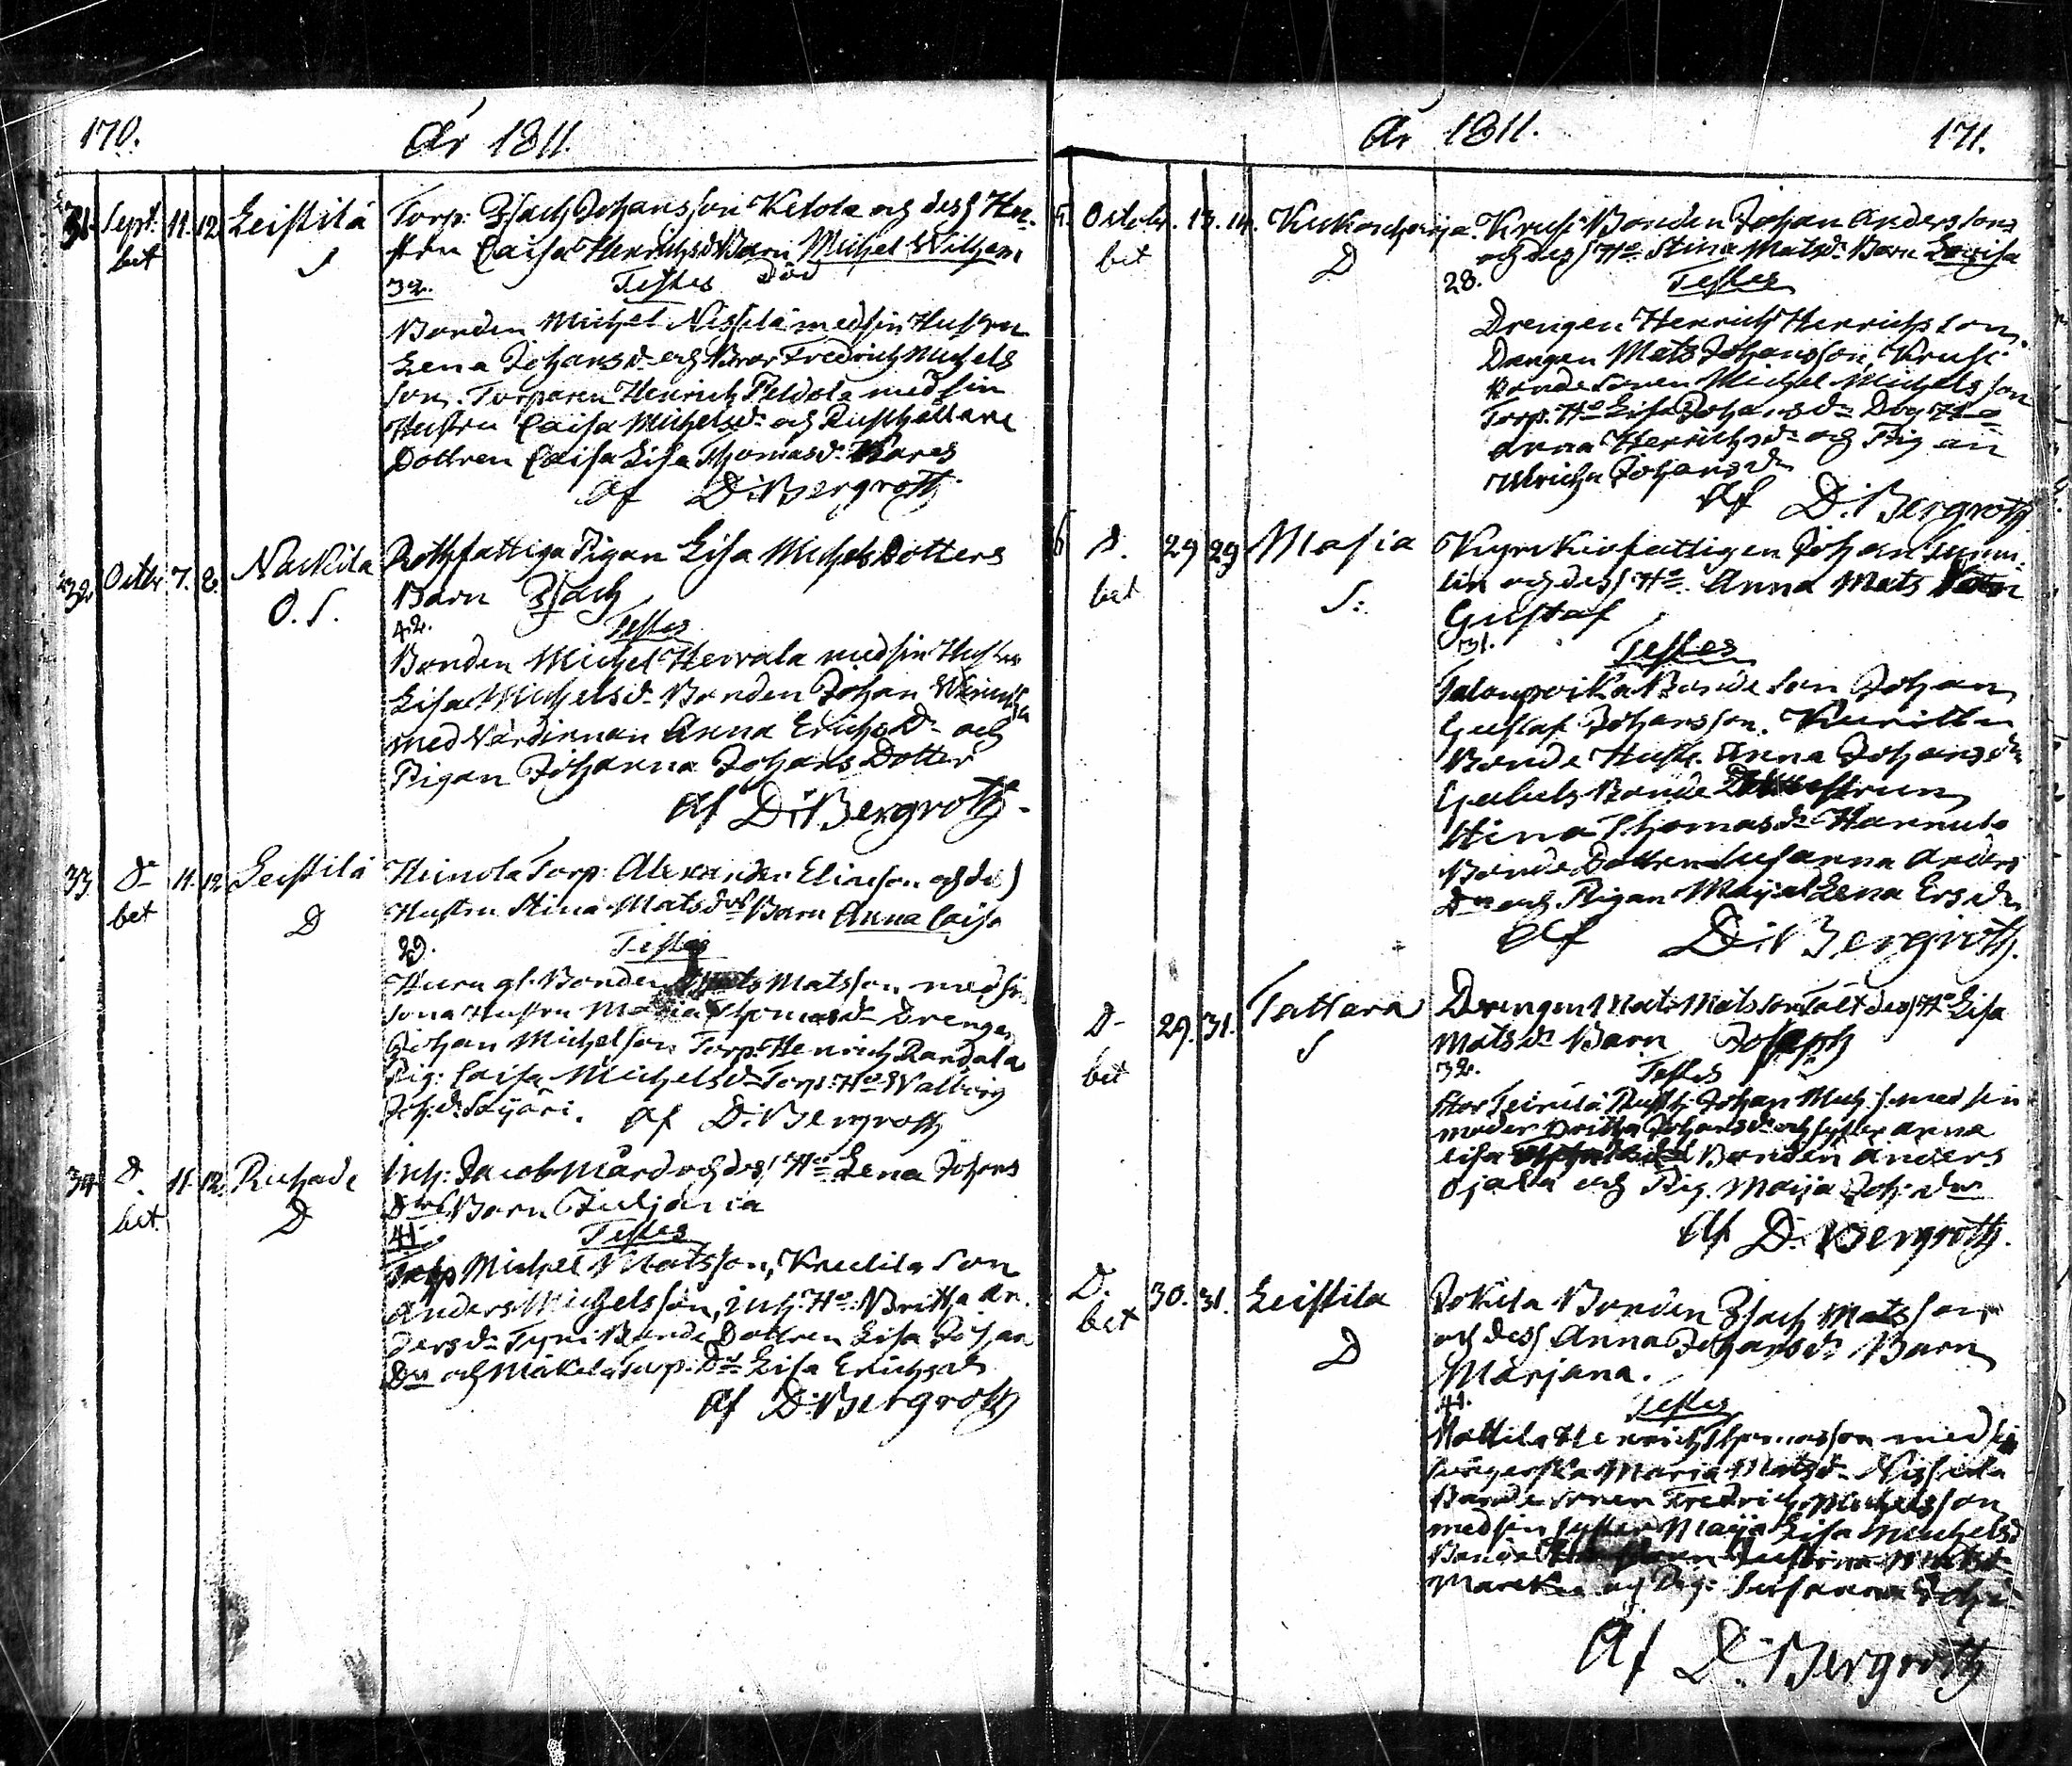 170. År 1811.
31. Sept. 11. 12. Leistilä Torp: Isach Johansson Ketola och dess Hu-
bet S stru Caisa Henrichsd Barn Michel Wilhem
32. Testes död
Bonden Michel Nissilä med sin Hustru
Lena Johansd:r och Bror Fredrich Michels
son. Torparen Henrich Peldola med sin
Hustru Caisa Michelsd:r och Rusthållare
Dottren Caisa Lisa Thomasd:r Kares
Af D: Bergroth
32. Octbr 7. 8. Nackila Rothfattiga Pigan Lisa Michels Dotters
O. S. Barn Isach
42. Testes
Bonden Michel Hervala med sin Hustru
Lisa Michelsd:r Bonden Johan
med Värdinnan Anna Erichs D:r och
Pigan Johanna Johans Dotter
Af D: Bergroth
33. D:o 11. 12. Leistilä Heinola Torp: Alexander Eliæson och des
bet D Hustru Stina Matsd:rs Barn Anna Caisa
29. Testes
gl. Bonden Mats Matsson med
sona Hustru Maria Thomasd:r Drengen
Johan Michelson Torp: Henrich Randala
Pig: Caisa Michelsd:r Torp: H:o Walborg
Joh:d:r Säyäri. Af D: Bergroth
34. D. 11. 12. Ruhade Inh: Jacob Mård och dess H:o Lena Johans
bet. D D:rs Barn Juljana
41. Testes
Torp Michel Matsson, Son
Anders Michelsson, inh: H:o Britha An-
dersd:r Tyni Bonde Dottren Lisa Johans
D:r och Mäkelä Torp. D:r Lisa Erichsd:r
Af D: Bergroth
År 1811. 171.
5. Octobr. 13. 14. Kukonharja Krusi Bonden Johan Anderssons
bet D och dess H:o Stina Matsd:r Barn Lovisa
28. Testes
Drengen Henrich Henrichsson
Drengen Mats Johansson, Krusi
Bonde Sonen Michel Michelsson
Torp: H:o Lisa Johansd:r H:o
Anna Henrichsd:r och Pigan
Ulricha Johansd:r
Af D: Bergroth
6 D. 29 29 Masia Kyrckiofattigen Johan
bet S: lin och dess H:o Anna Mats
Gustaf
31. Testes
Talonpoika Bonde Son Johan
Gustaf Johansson.
Bonde Hustr. Anna Johansd:r
Bonde Hustrun
Stina Thomasd:r Hannula
Bonde Dottren Susanna Anders
D:r och Pigan Maija Lena Ersd:r
Af D: Bergroth.
D:o 29. 31. Tattara Drengen Mats Matsson dess H:o Lisa
bet S Matsd:r Barn Joseph
32. Testes
Stor Teirilä Johan Mich:s. med sin
moder Britha Johansd:r och syster Anna
Lisa Bonden Anders
Ojala och Pig. Maija Joh:d:r
Af D: Bergroth.
D. 30. 31. Leistila Jokela Bonden Isach Matsson
bet D och dess Anna Johansd:r Barn
Marjana.
41. Testes
Mattila Henrich Thomasson med sin
Maria Matsd:r Nissila
Bonde sonen Fredrich Michelsson
med sin syster Maija Lisa Michelsd
Bonde
och Pig: Susanna Johd:r
Af D: Bergroth